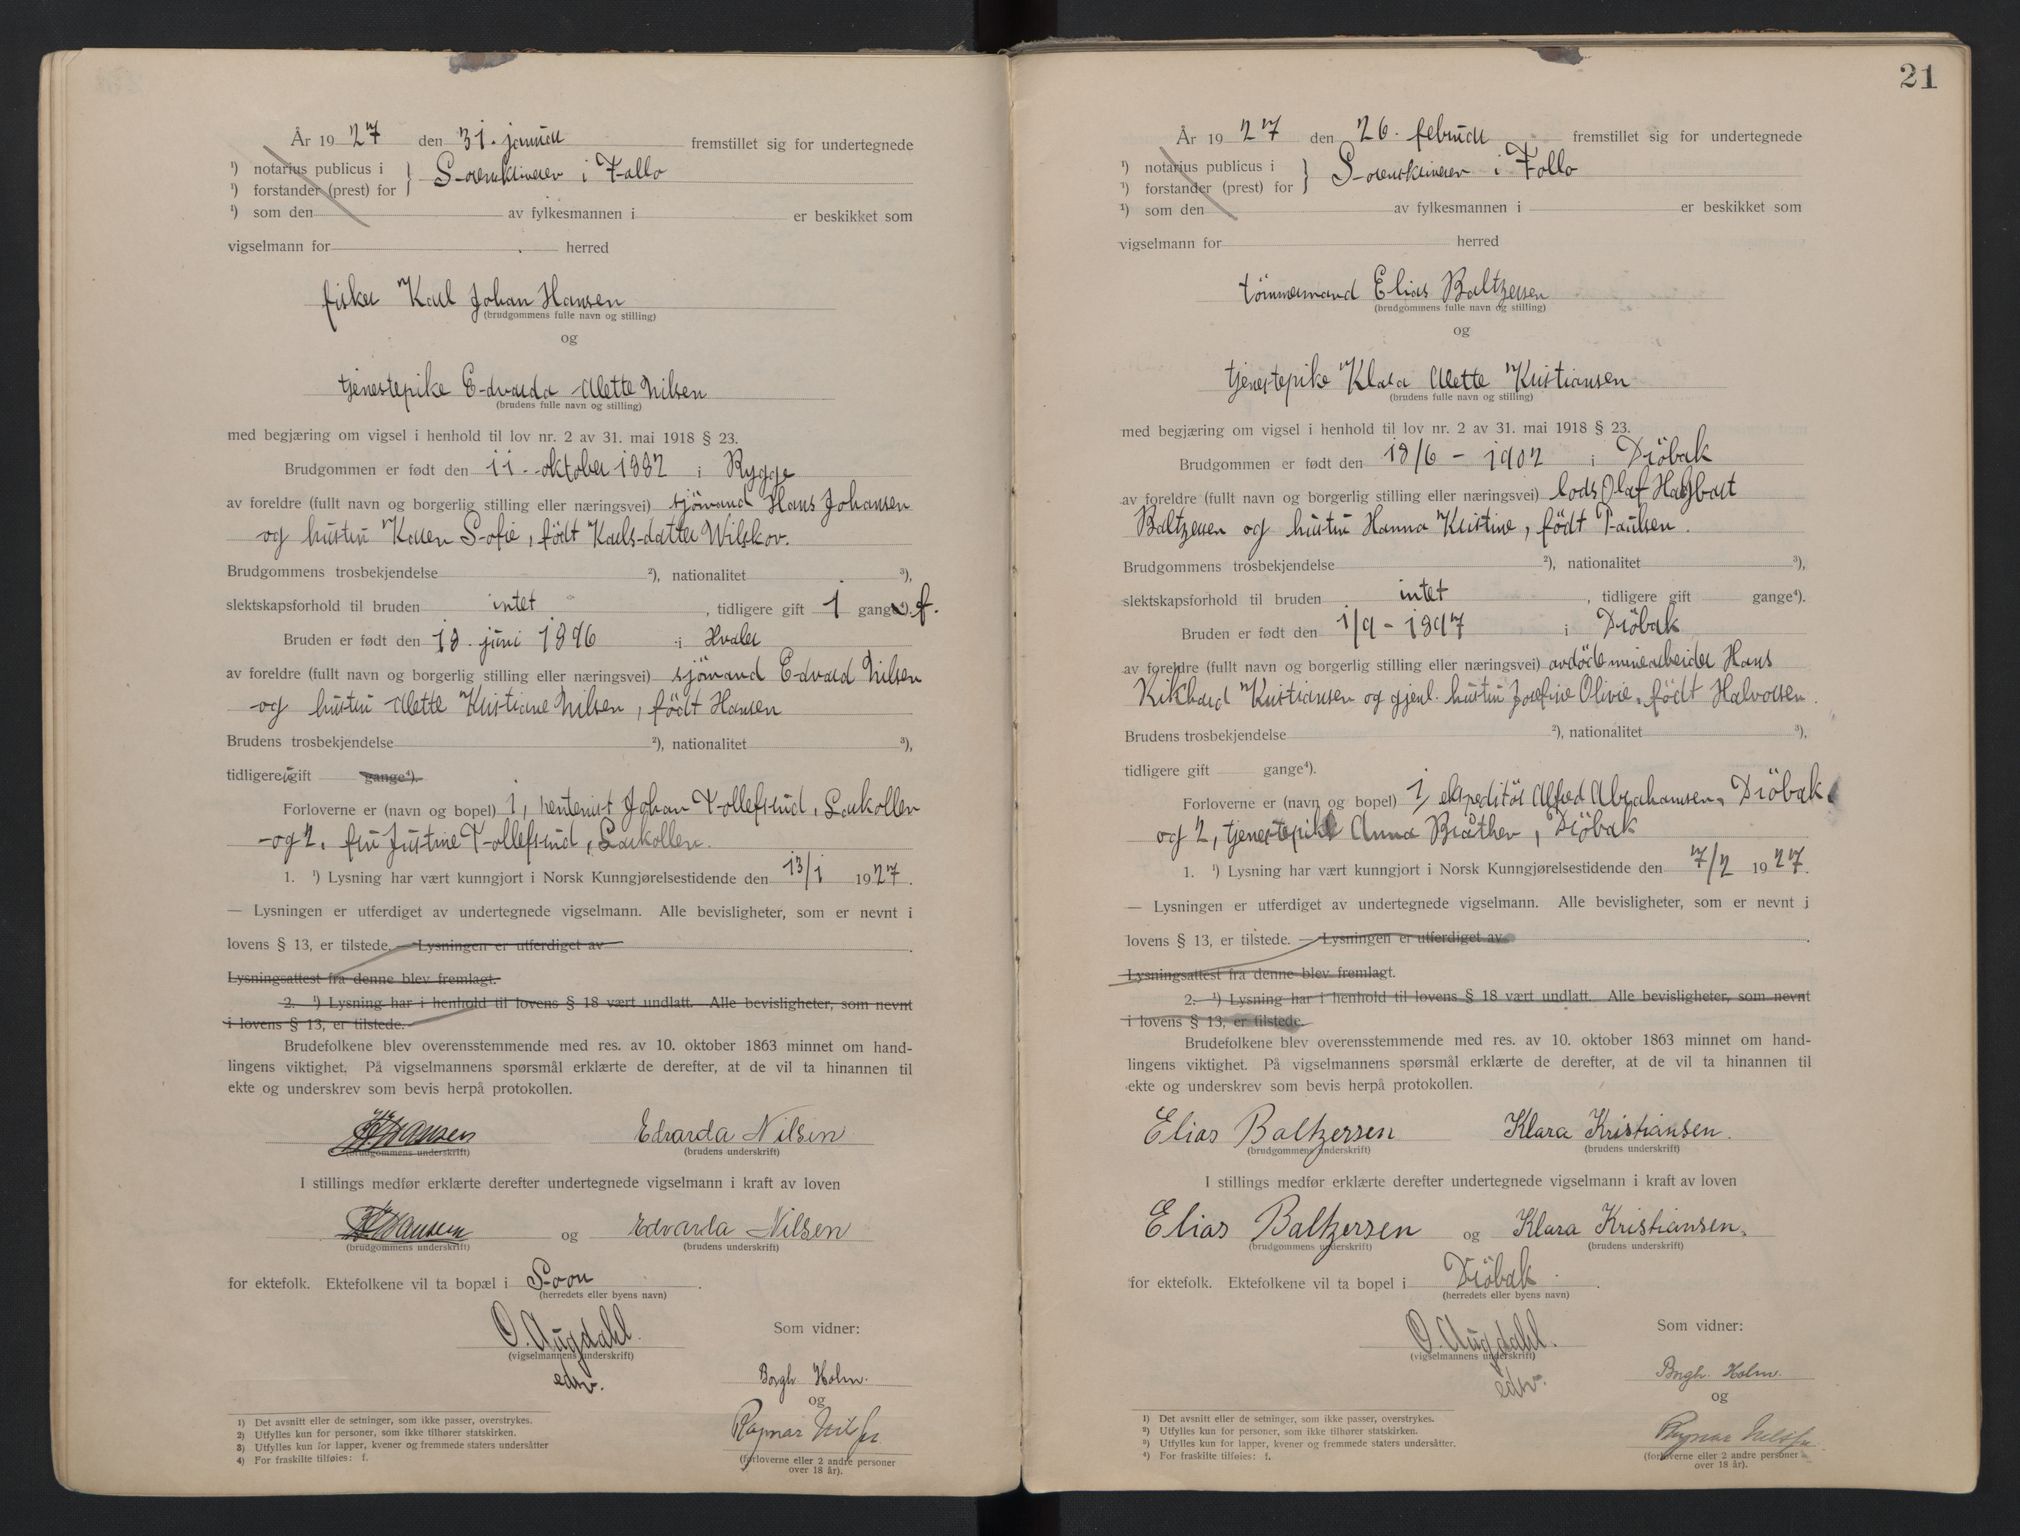 År 1927 den 31. januar fremstillet sig for undertegnede
¹) notarius publicus i
¹) forstander (prest) for } Sorenskriveren i Follo
¹) som den av fylkesmannen i er beskikket som
vigselmann for herred
fisker Karl Johan Hansen
(brudgommens fulle navn og stilling)
og
tjenestepike Edvarda Alette Nilsen
(brudens fulle navn og stilling)
med begjæring om vigsel i henhold til lov nr. 2 av 31. mai 1918 § 23.
Brudgommen er født den 11. oktober 1882 i Rygge
av foreldre (fullt navn og borgerlig stilling eller næringsvei) sjömand Hans Johansen
og hustru Karen Sofie, födt Karls-datter Wilskov.
Brudgommens trosbekjendelse ²), nationalitet ³),
slektskapsforhold til bruden intet, tidligere gift 1 gange⁴). f.
Bruden er født den 18. juni 1896 i Hvaler
av foreldre (fullt navn og borgerlig stilling eller næringsvei) sjömand Edvard Nilsen
og hustru Alette Kristiane Nilsen, födt Hansen
Brudens trosbekjendelse ²), nationalitet ³),
tidligere gift gange⁴).
Forloverne er (navn og bopel) 1, rentenist Johan Tollefsrud, Larkollen
og 2, fru Justine Tollefsrud, Larkollen.
1. ¹) Lysning har vært kunngjort i Norsk Kunngjørelsestidende den 13/1 1927.
— Lysningen er utferdiget av undertegnede vigselmann. Alle bevisligheter, som er nevnt i
lovens § 13, er tilstede. — Lysningen er utferdiget av .
Lysningsattest fra denne blev fremlagt.
2. ¹) Lysning har i henhold til lovens § 18 vært undlatt. Alle bevisligheter, som nevnt
i lovens § 13, er tilstede.
Brudefolkene blev overensstemmende med res. av 10. oktober 1863 minnet om hand-
lingens viktighet. På vigselmannens spørsmål erklærte de derefter, at de vil ta hinannen til
ekte og underskrev som bevis herpå protokollen.
Hansen Edvarda Nilsen
(brudgommens underskrift) (brudens underskrift)
I stillings medfør erklærte derefter undertegnede vigselmann i kraft av loven
Hansen og Edvarda Nilsen
(brudgommens underskrift) (brudens underskrift)
for ektefolk. Ektefolkene vil ta bopæl i Soon .
(herredets eller byens navn)
O. Augdahl. Som vidner:
(vigselmannens underskrift)
edsv. Borgh. Holm.
og
Ragnar
(forloverne eller 2 andre personer
over 18 år).
1) Det avsnitt eller de setninger, som ikke passer, overstrykes.
2) Utfylles kun for personer, som ikke tilhører statskirken.
3) Utfylles kun for lapper, kvener og fremmede staters undersåtter
4) For fraskilte tilføies: f.
21
År 1927 den 26. februar fremstillet sig for undertegnede
¹) notarius publicus i
¹) forstander (prest) for } Sorenskriveren i Follo
¹) som den av fylkesmannen i er beskikket som
vigselmann for herred
tömmermand Elias Baltzersen
(brudgommens fulle navn og stilling)
og
tjenestepike Klara Alette Kristiansen
(brudens fulle navn og stilling)
med begjæring om vigsel i henhold til lov nr. 2 av 31. mai 1918 § 23.
Brudgommen er født den 18/6 - 1902 i Dröbak
av foreldre (fullt navn og borgerlig stilling eller næringsvei) lods Olaf Hagbart
Baltzersen og hustru Hanna Kristine, födt Paulsen.
Brudgommens trosbekjendelse ²), nationalitet ³),
slektskapsforhold til bruden intet, tidligere gift gange⁴).
Bruden er født den 1/9 - 1897 i Dröbak
av foreldre (fullt navn og borgerlig stilling eller næringsvei) avdöde minearbeider Hans
Rikhard Kristiansen og gjenl. hustru Josefine Olivie, födt Halvorsen.
Brudens trosbekjendelse ²), nationalitet ³),
tidligere gift gange⁴).
Forloverne er (navn og bopel) 1, ekspeditör Alfred Abrahamsen, Dröbak
og 2, tjenestepike Anna Bråthen, Dröbak
1. ¹) Lysning har vært kunngjort i Norsk Kunngjørelsestidende den 7/2 1927.
— Lysningen er utferdiget av undertegnede vigselmann. Alle bevisligheter, som er nevnt i
lovens § 13, er tilstede. — Lysningen er utferdiget av .
Lysningsattest fra denne blev fremlagt.
2. ¹) Lysning har i henhold til lovens § 18 vært undlatt. Alle bevisligheter, som nevnt
i lovens § 13, er tilstede.
Brudefolkene blev overensstemmende med res. av 10. oktober 1863 minnet om hand-
lingens viktighet. På vigselmannens spørsmål erklærte de derefter, at de vil ta hinannen til
ekte og underskrev som bevis herpå protokollen.
Elias Baltzersen Klara Kristiansen.
(brudgommens underskrift) (brudens underskrift)
I stillings medfør erklærte derefter undertegnede vigselmann i kraft av loven
Elias Baltzersen og Klara Kristiansen.
(brudgommens underskrift) (brudens underskrift)
for ektefolk. Ektefolkene vil ta bopel i Dröbak .
(herredets eller byens navn)
O. Augdahl. Som vidner:
(vigselmannens underskrift)
edsv. Borgh. Holm.
og
Ragnar
(forloverne eller 2 andre personer
over 18 år).
1) Det avsnitt eller de setninger, som ikke passer, overstrykes.
2) Utfylles kun for personer, som ikke tilhører statskirken.
3) Utfylles kun for lapper, kvener og fremmede staters undersåtter.
4) For fraskilte tilføies: f.